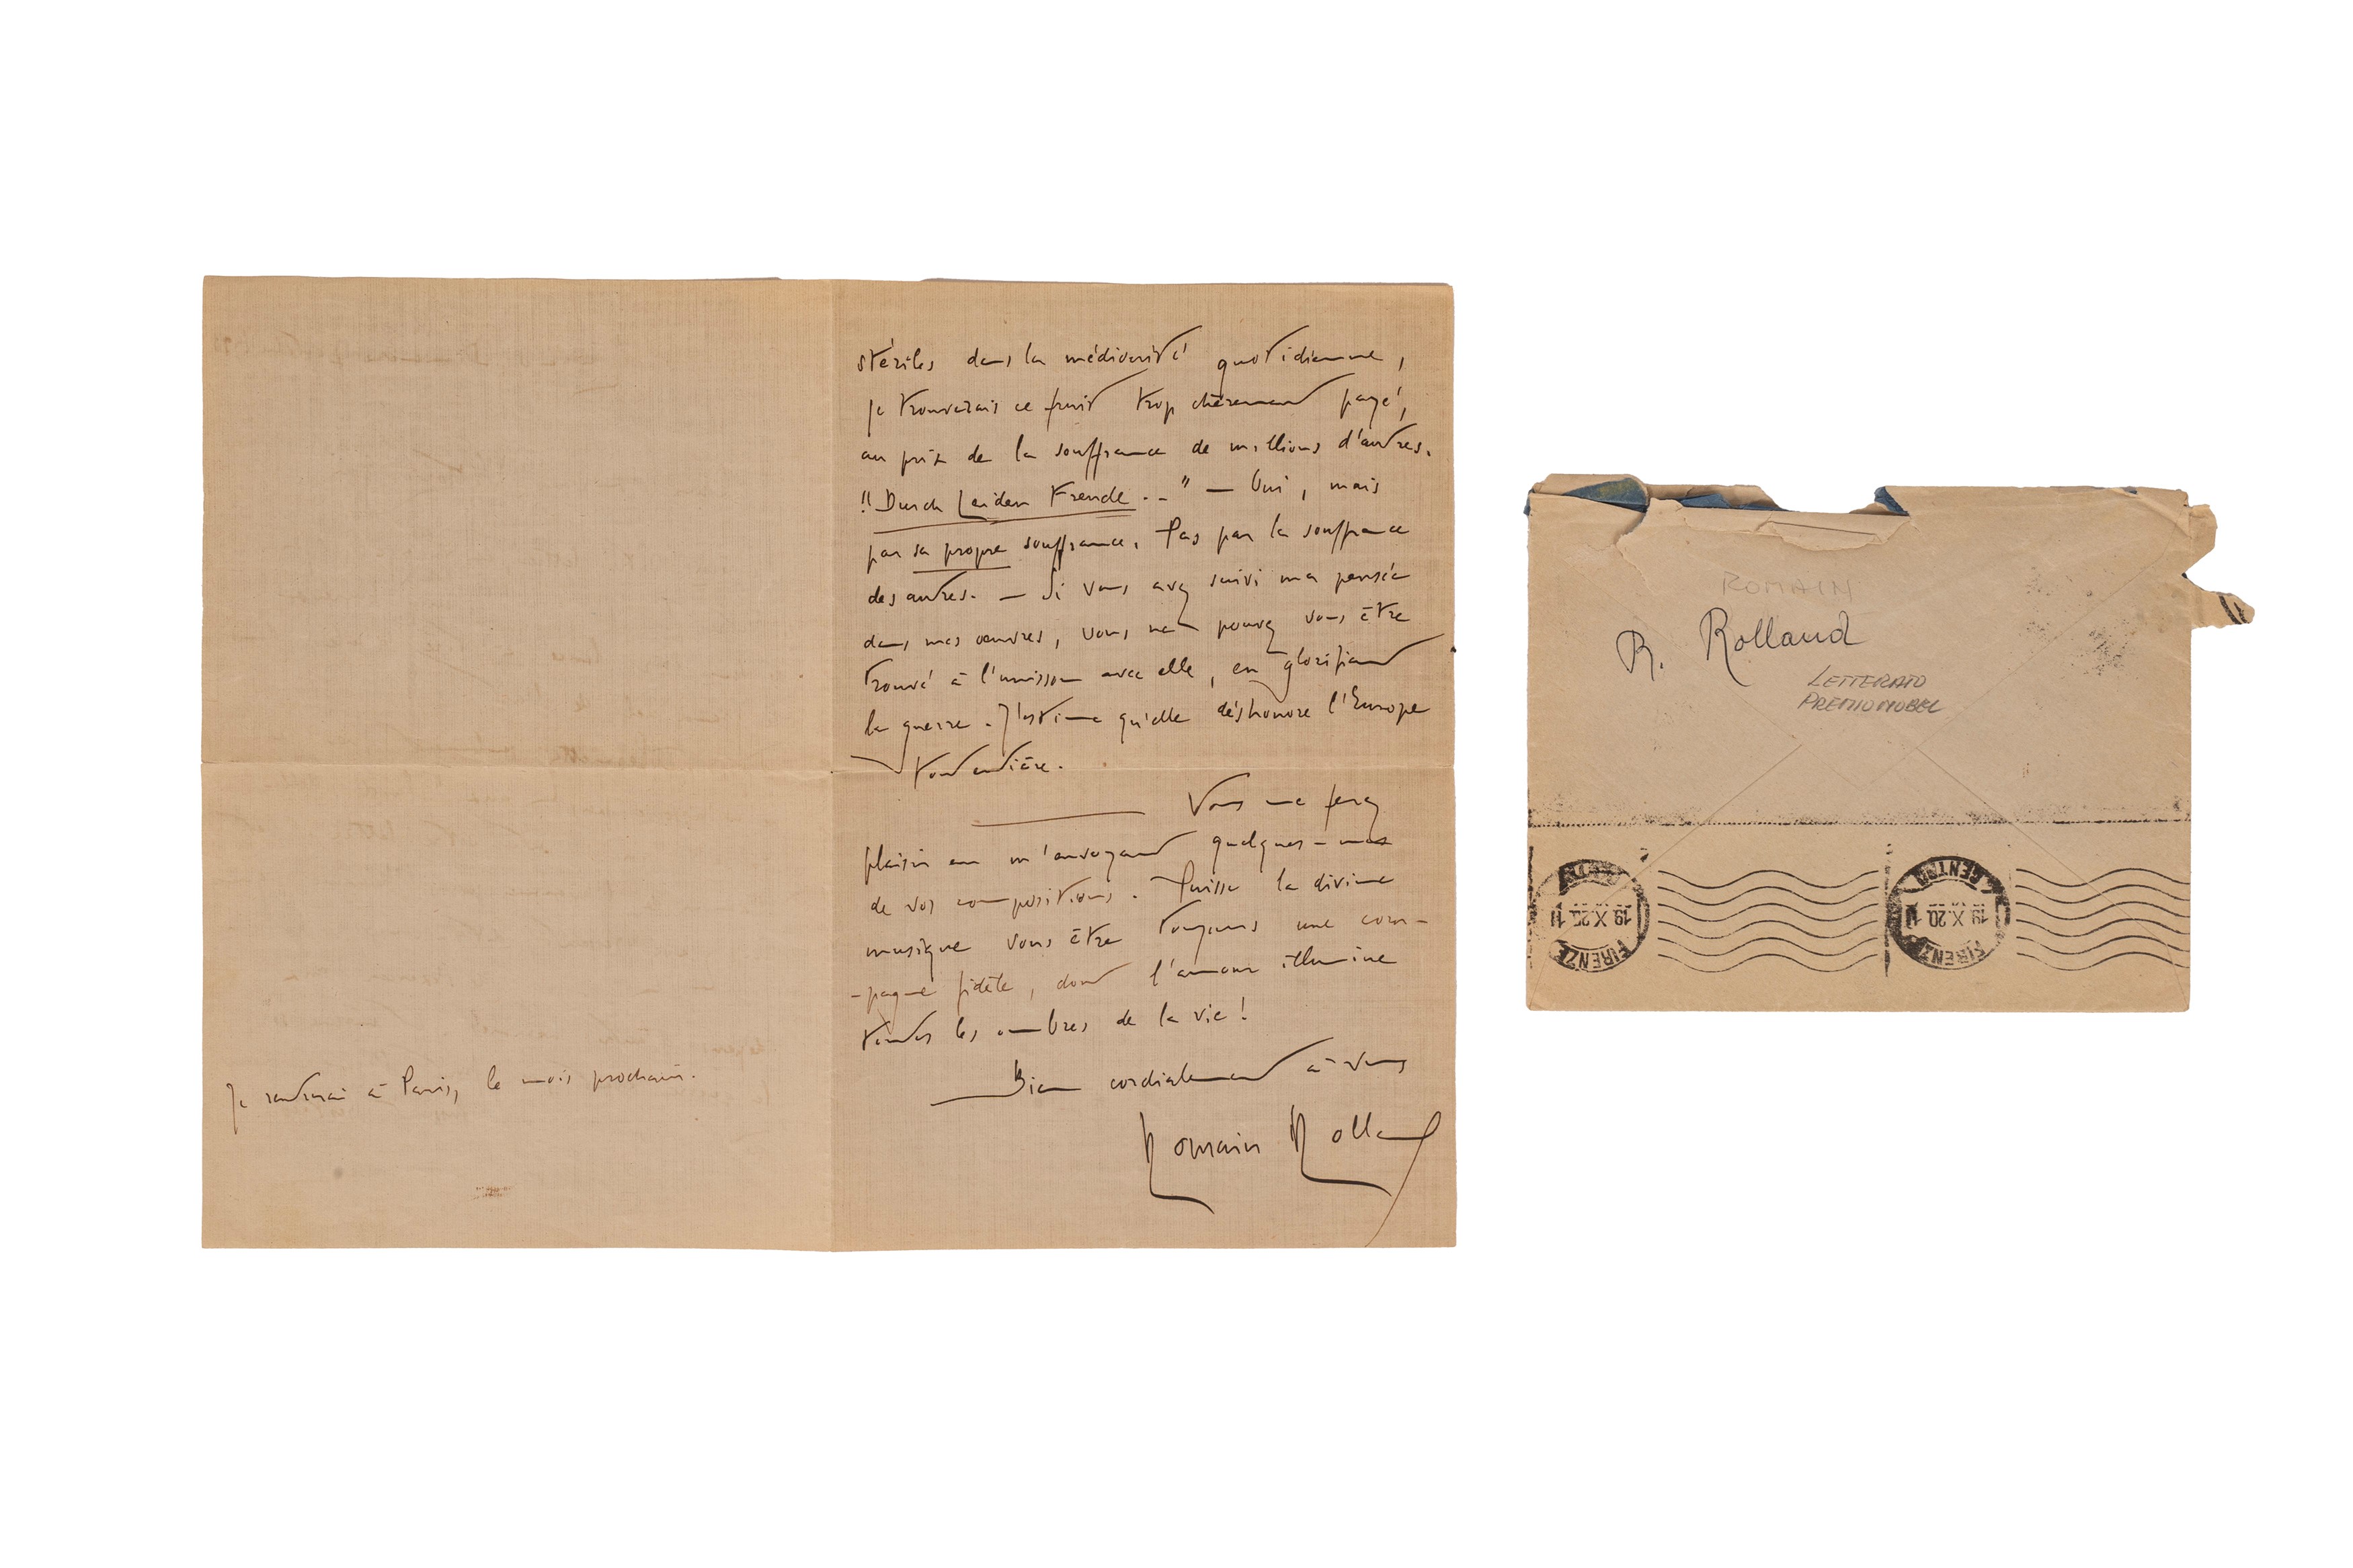 Je rentrerai à Paris, le mois prochain.
stériles dans la médiocrité quotidienne,
je trouverais ce fruit trop chèrement payé,
au prix de la souffrance de millions d'autres.
"Durch Leiden Freude .." — Oui, mais
par sa propre souffrance. Pas par la souffrance
des autres. — Si vous avez suivi ma pensée
dans mes œuvres, vous ne pouvez vous être
trouvé à l'unisson avec elle, en glorifiant
la guerre. J'estime qu'elle déshonore l'Europe
tout entière.
Vous me ferez
plaisir en m'envoyant quelques-unes
de vos compositions. Puisse la divine
musique vous être toujours une com-
-pagne fidèle, dont l'amour illumine
toutes les ombres de la vie!
Bien cordialement à vous
Romain Rolland
ROMAIN
R. Rolland
LETTERATO
PREMIO NOBEL
FIRENZE
19.X.20.
FIRENZE CENTRO
19.X.20.